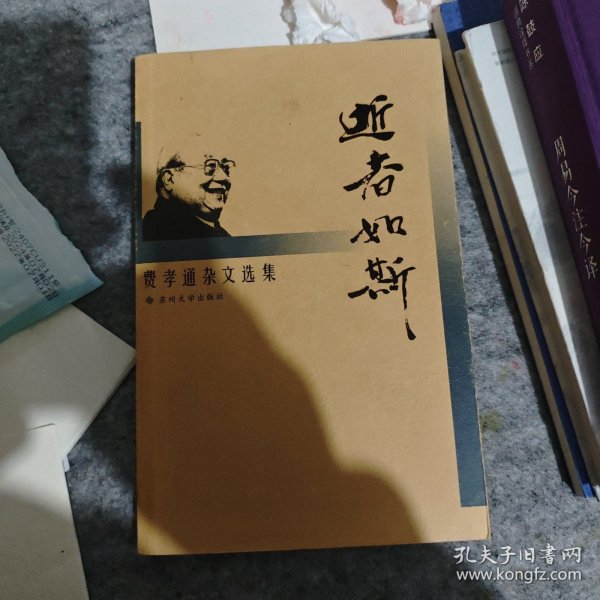 逝者如斯
费孝通杂文选集
苏州大学出版社
鼓应
周易今注今译
孔夫子旧书网
www.kongfz.com